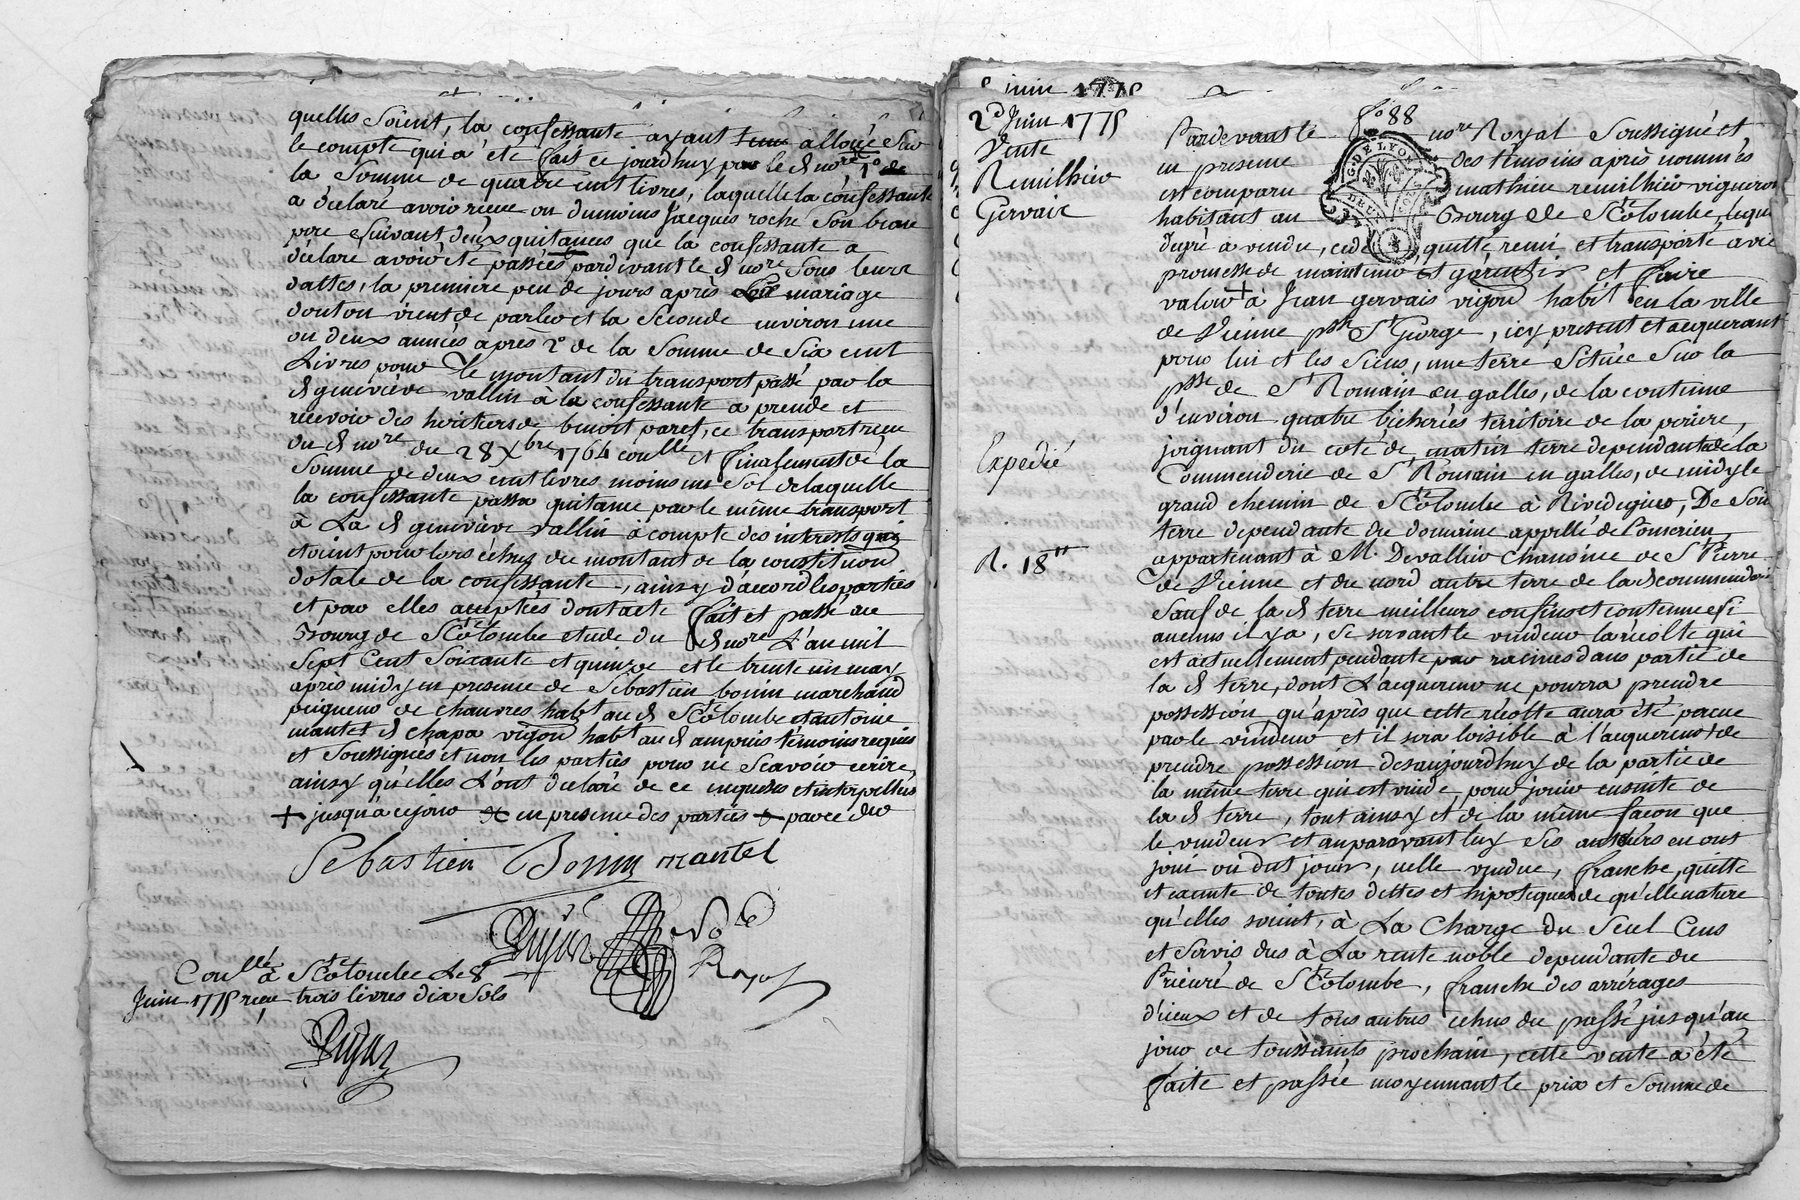 quelles soient, la confessante ayant alloué sur
le compte qui a été fait ce jourdhuy par le d. nore 1o de
la somme de quatre cent livres, laquelle la confessante
a déclaré avoir reçue ou dumoins Jacques roche son beau
pere suivant deux quitances que la confessante a
déclaré avoir été passées pardevant le d. nore sous leurs
dattes, la premiere peu de jours après mariage
dont on vient de parler et la seconde environ une
ou deux années après 2o de la somme de six cent
Livres pour le montant du transport passé par la
d. geneviève vallin à la confessante à prendre et
recevoir des heritiers de benoit paret, ce transport reçu
du d. nore du 28 Xbre 1764 coullé et finalement de la
somme de deux cent livres moins un sol de laquelle
la confessante passa quitance par le même transport
à La d. geneviève vallin à compte des interests qui
etoient pour lors échus du montant de la constitution
dotale de la confessante, ainsy d'accord les parties
et par elles acceptés dont acte fait et passé au
Bourg de Ste Colombe etude du d. nore L'an mil
sept cent soixante et quinze et le trente un may
après midy en presence de Sébastien bonin marchand
peigneur de chanvres habt au d. Ste Colombe et antoine
mantel d. chapa vigon habt au d. ampuis temoins requis
et soussignés et non les parties pour ne scavoir écrire,
ainsy qu'elles L'ont déclaré de ce enquises et interpellées
+ jusqu'à ce jour en presence des parties parce du
Sebastien Bonin mantel
Dujas
Royal
Coullé à Ste Colombe Le 8
Juin 1775 reçu trois livres dix sols
Dujas
juin 1775
2d Juin 1775
Vente
Remilhier
Gervais
Expedié
R. 18tt
fo 88
G. DE LYON
DEUX
Pardevant le nore Royal soussigné et
en presence des témoins après nommés
est comparu mathieu remilhier vigneron
habitant au Bourg de Ste Colombe, lequel
degré a vendu, cedé, quitté, remis et transporté avec
promesse de maintenir et garantir et faire
valoir + à Jean gervais vigon habit en la ville
de Vienne psse St George, icy present et acquerant
pour lui et les siens, une terre située sur la
psse de St Romain en galles, de la contenue
d'environ quatre bicherées territoire de la poirre,
joignant du coté de matin terre dependante de la
Commenderie de St Romain en galles, de midy le
grand chemin de Ste Colombe à Rivedegier, De soir
terre dependante du domaine appellé de Pomerieu
appartenant à M. Devallier Chanoine de St Pierre
de Vienne et du nord autre terre de lad. commenderie
sauf de la d. terre meilleurs confins et contenue si
aucuns il y a, se servant le vendeur la récolte qui
est actuellement pendante par racines dans partie de
la d. terre, dont L'acquereur ne pourra prendre
possession qu'après que cette récolte aura été percue
par le vendeur et il sera loisible à l'acquereur de
prendre possession desaujourdhuy de la partie de
la même terre qui est vuide, pour jouir ensuite de
la d. terre, tout ainsy et de la même façon que
le vendeur et auparavant luy ses auteurs en ont
joui ou dut jouir, icelle vendue, franche, quitte
et exempte de toutes dettes et hipoteques de qu'elle nature
qu'elles soient, à La Charge du seul Cens
et servis dus à La rente noble dependante du
Prieuré de Ste Colombe, franche des arrérages
d'iceux et de tous autres échus du passé jusqu'au
jour de toussaints prochain, cette vente a été
faite et passée moyennant le prix et somme de